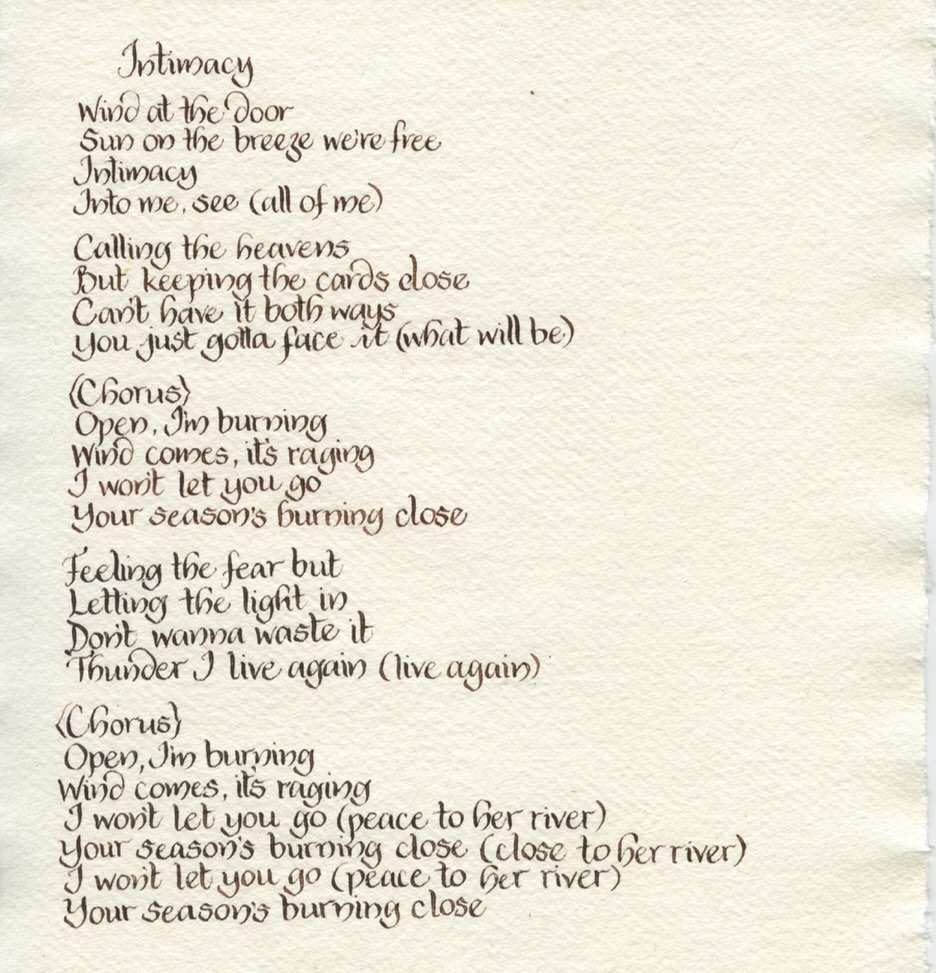 Intimacy
Wind at the door
Sun on the breeze we're free
Intimacy
Into me, see (all of me)
Calling the heavens
But keeping the cards close
Can't have it both ways
You just gotta face it (what will be)
{Chorus}
Open, I'm burning
Wind comes, it's raging
I won't let you go
Your season's burning close
Feeling the fear but
Letting the light in
Don't wanna waste it
Thunder I live again (live again)
{Chorus}
Open, I'm burning
Wind comes, it's raging
I won't let you go (peace to her river)
Your season's burning close (close to her river)
I won't let you go (peace to her river)
Your season's burning close